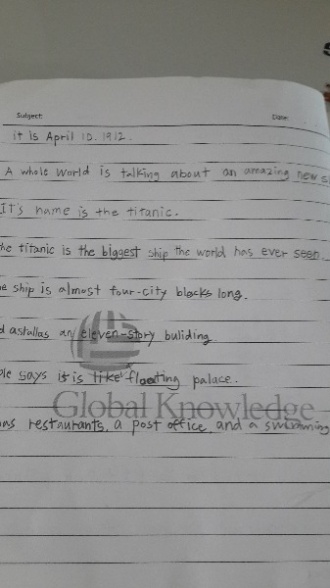 Subject:
Date:
it is April 10. 1912.
A whole world is talking about an amazing new s
It's name is the titanic.
he titanic is the biggest ship the world has ever seen.
e ship is almost four-city blocks long.
d astallas an eleven-story buliding
ple says it is like floating palace.
Global Knowledge
as restaurants, a post office, and a swimming